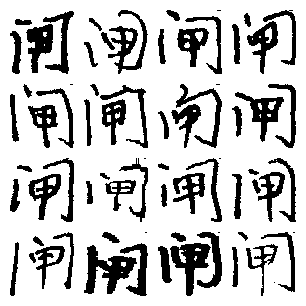 闸闸闸闸
闸闸闸闸
闸闸闸闸
闸闸闸闸